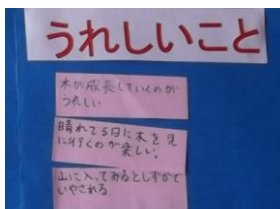 うれしいこと
木が成長していくのが
うれしい
晴れてる日に木を見
に行くのが楽しい。
山に入ってみるとしずかで
いやされる